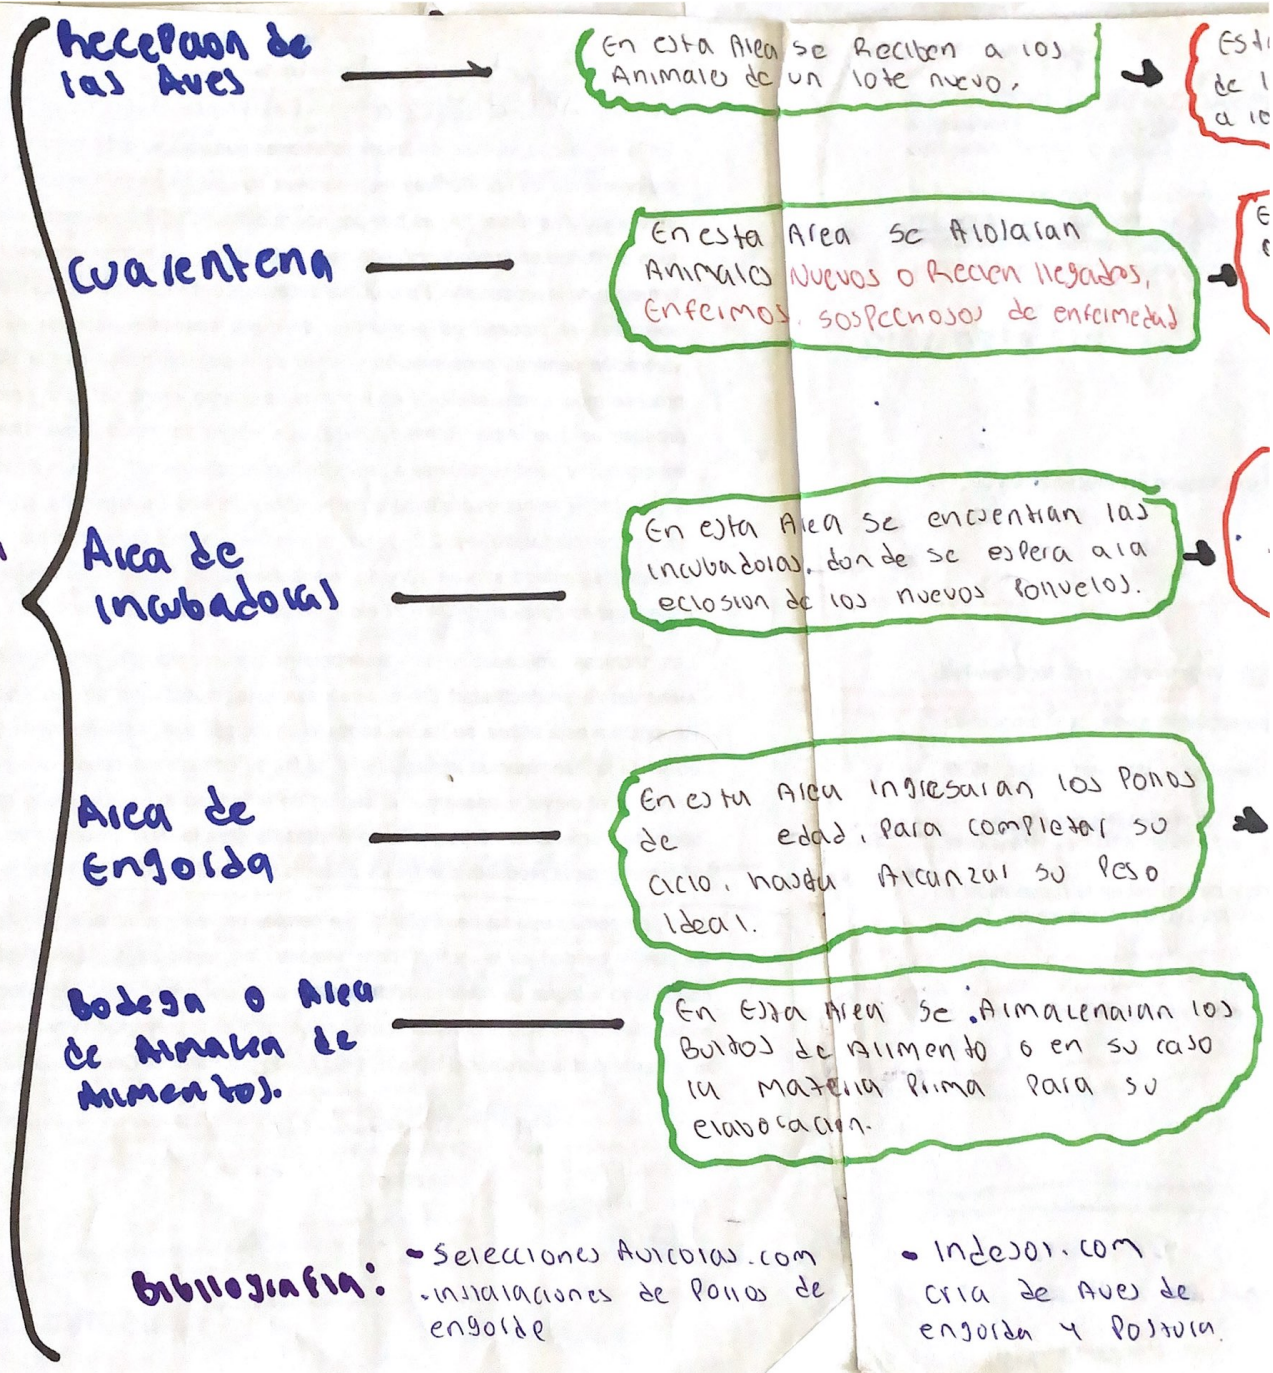 Recepcion de
las Aves
En esta Area se Reciben a los
Animales de un lote nuevo.
de l
a lo
Cuarentena
En esta Area se Aislaran
Animales Nuevos o Recien llegados,
Enfermos, sospechosos de enfermedad
Area de
incubadoras
En esta Area se encuentran las
incubadoras, donde se espera a la
eclosion de los nuevos Polluelos.
Area de
Engorda
En esta Area ingresaran los Pollos
de edad, Para completar su
ciclo, hasta Alcanzar su Peso
Ideal.
Bodega o Area
de Almacen de
Alimentos.
En Esta Area se Almacenaran los
Bultos de Alimento o en su caso
la Materia Prima Para su
elaboracion.
Bibliografia:
• Selecciones Avicolas.com
.instalaciones de Pollos de
engorde
• Indesor.com
cria de Aves de
engorda y Postura.